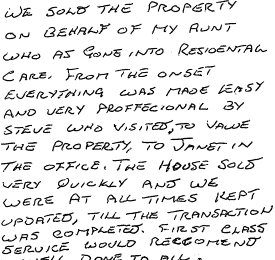 WE SOLD THE PROPERTY
ON BEHALF OF MY AUNT
WHO AS GONE INTO RESIDENTAL
CARE. FROM THE ONSET
EVERYTHING WAS MADE EASY
AND VERY PROFFECIONAL BY
STEVE WHO VISITED, TO VALUE
THE PROPERTY, TO JANET IN
THE OFFICE. THE HOUSE SOLD
VERY QUICKLY AND WE
WERE AT ALL TIMES KEPT
UPDATED, TILL THE TRANSACTION
WAS COMPLETED. FIRST CLASS
SERVICE WOULD RECCOMEND
WELL DONE TO ALL.